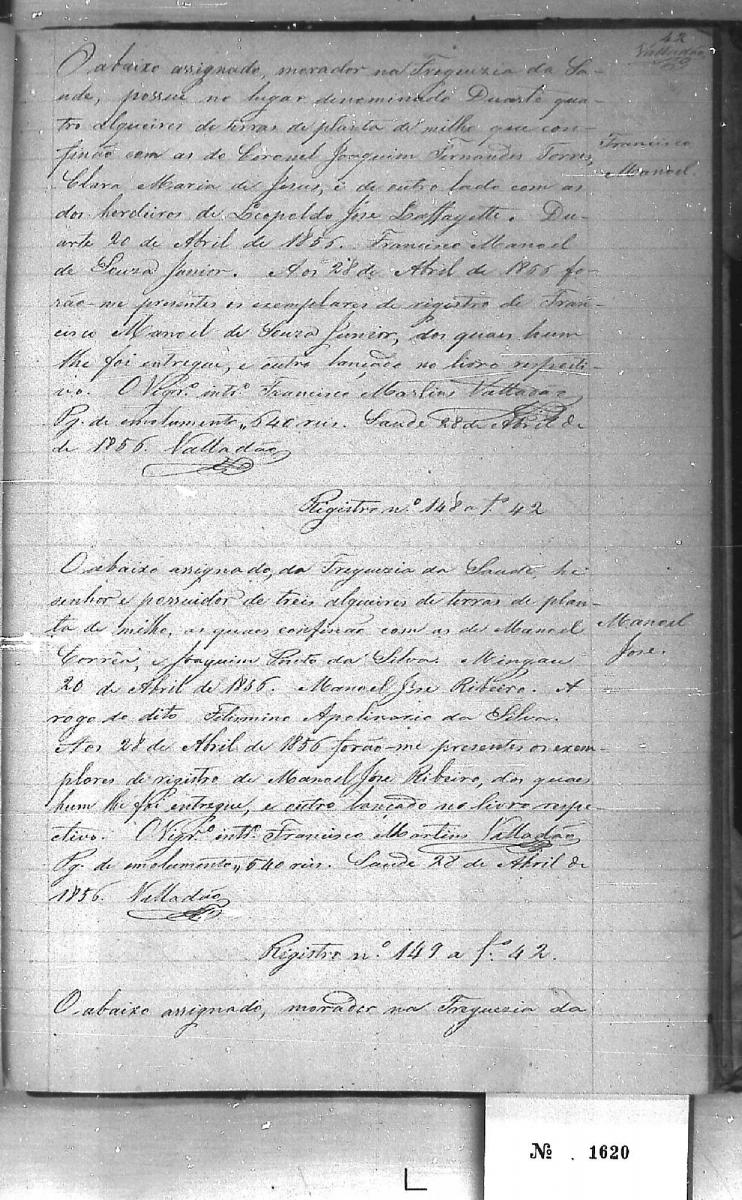 42
Valladão
O abaixo assignado, morador na Freguezia da Sa-
ude, possue no lugar denominado Duarte qua-
tro alqueires de terras de planta de milho que con-
finão com as do Coronel Joaquim Fernandes Torres,
Clara Maria de Jesus, e de outro lado com as
dos herdeiros de Leopoldo José Laffayette. Du-
arte 20 de Abril de 1856. Francisco Manoel
de Souza Junior. Aos 28 de Abril de 1856 fo-
rão-me presentes os exemplares de registro de Fran-
cisco Manoel de Souza Junior, dos quaes hum
lhe foi entregue, e outro lançado no livro respecti-
vo. O Vigr.º int.º Francisco Martins Valladão
Pg. de emolumento " 640 reis. Saude 28 de Abril de
de 1856. Valladão
Francisco
Manoel.
Registro n.º 148 a f.º 42
O abaixo assignado, da Freguezia da Saude, he
senhor e possuidor de treis alqueires de terras de plan-
ta de milho, as quaes confinão com as de Manoel
Corrêa, e Joaquim da Silva. Mingau
20 de Abril de 1856. Manoel José Ribeiro. A
rogo do dito Felismino Apolinario da Silva.
Aos 28 de Abril de 1856 forão-me presentes os exem-
plares de registro de Manoel José Ribeiro, dos quaes
hum lhe foi entregue, e outro lançado no livro respe-
ctivo. O Vigr.º int.º Francisco Martins Valladão
Pg. de emolumento " 640 reis. Saude 28 de Abril de
1856. Valladão
Manoel
José.
Registro n.º 149 a f.º 42.
O abaixo assignado, morador na Freguezia da
Nº . 1620